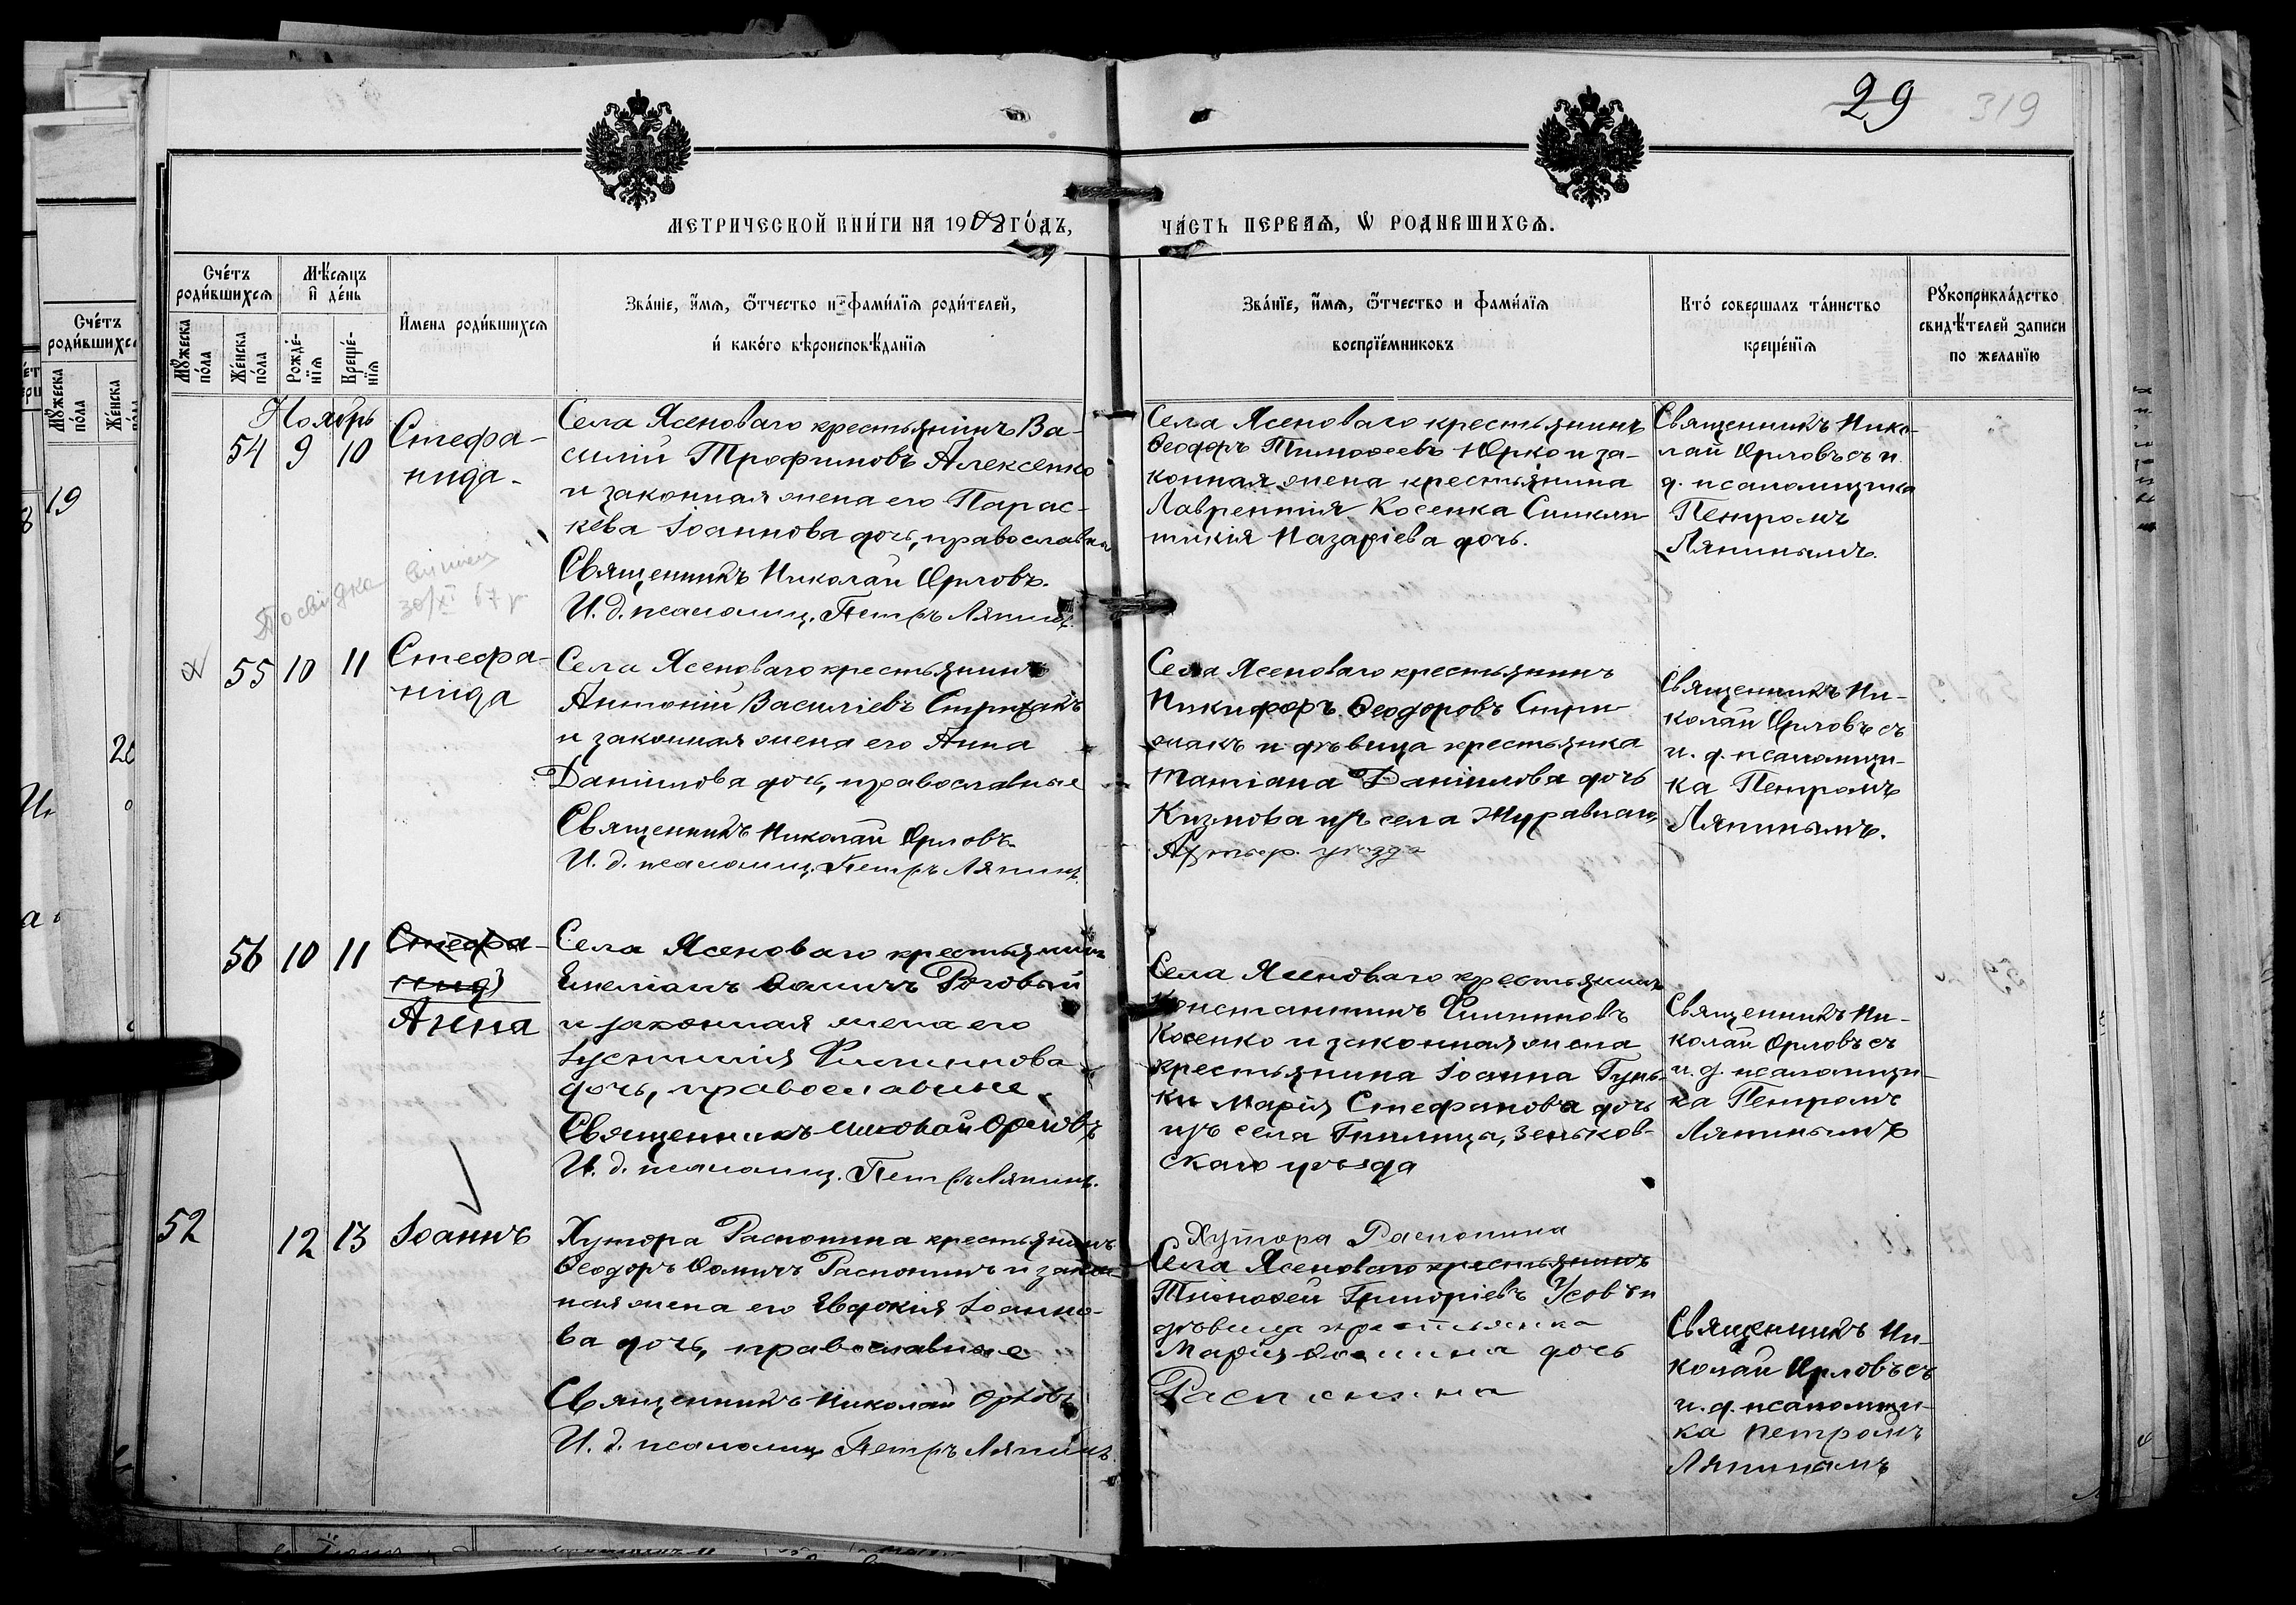 29 319
МЕТРИЧЕСКОЙ КНИ́ГИ НА 1908 ГО́ДЪ,
ЧА́СТЬ ПЕРВАѦ, Ѡ РОДИВШИХСѦ.
Сче́тъ роди́вшихсѧ
Мꙋ́жеска по́ла
Же́нска по́ла
Мѣ́сѧцъ и҆ де́нь
Рожде́нїѧ
Креще́нїѧ
И҆мена роди́вшихсѧ
Зва́нїе, и҆́мѧ, ѻ҆́тчество и҆ фами́лїѧ роди́телей,
и҆ како́гѡ вѣроисповѣ́данїѧ
Зва́нїе, и҆́мѧ, ѻ҆́тчество и фами́лїѧ
воспрїе́мниковъ
Кто́ соверша́лъ та́инство
креще́нїѧ
Рꙋкоприкла́дство
свидѣ́телей записи
по жела́нїю
Ноябрь
54 9 10
Стефа-
нида
Села Ясеноваго крестьянинъ Ва-
силій Трофимовъ Алексенко
и законная жена его Парас-
кева Іоаннова дочь, православн
Священникъ Николай Орловъ.
И. д. псаломщ. Петръ Ляпинъ.
Села Ясеноваго крестьянинъ
Ѳеодоръ Тимоѳеевъ Юрко и за-
конная жена крестьянина
Лаврентія Косенка Синкли-
тикія Назаріева дочь.
Священникъ Нико-
лай Орловъ съ и.
д. псаломщика
Петромъ
Ляпинымъ.
Посвідка
30/XI 67 р.
55 10 11
Стефа-
нида
Села Ясеноваго крестьянинъ
Антоній Василіевъ Стрижакъ
и законная жена его Анна
Даніилова дочь, православные
Священникъ Николай Орловъ.
И. д. псаломщ. Петръ Ляпинъ.
Села Ясеноваго крестьянинъ
Никифоръ Ѳеодоровъ Стри-
жакъ и дѣвица крестьянка
Татіана Даніилова дочь
Кизмова изъ села Журавнаго,
Ахтыр. уѣзда
Священникъ Ни-
колай Орловъ съ
и. д. псаломщи-
ка Петромъ
Ляпинымъ.
56 10 11
Стефа-
нид
Анна
Села Ясеноваго крестьянинъ
Емеліанъ Ѳоминъ Роговый
и законная жена его
Іустинія Филиппова
дочь, православные.
Священникъ Николай Орловъ
И. д. псаломщ. Петръ Ляпинъ.
Села Ясеноваго крестьянинъ
Константинъ Филиповъ
Косенко и законная жена
крестьянина Іоанна Гунь-
ки Марія Стефанова дочь
изъ села Гнилица, Зеньков-
скаго уѣзда
Священникъ Ни-
колай Орловъ съ
и. д. псаломщи-
ка Петромъ
Ляпинымъ
52 12 13
Іоаннъ
Хутора Распопина крестьянинъ
Ѳеодоръ Ѳоминъ Распопинъ и закон-
ная жена его Евдокія Іоанно-
ва дочь, православные
Священникъ Николай Орловъ
И. д. псаломщ. Петръ Ляпинъ.
Хутора Распопина
Села Ясеноваго крестьянинъ
Тимоѳей Григоріевъ Усовъ и
дѣвица крестьянка
Марія Ѳомина дочь
Распопина
Священникъ Ни-
колай Орловъ съ
и. д. псаломщи-
ка Петромъ
Ляпинымъ